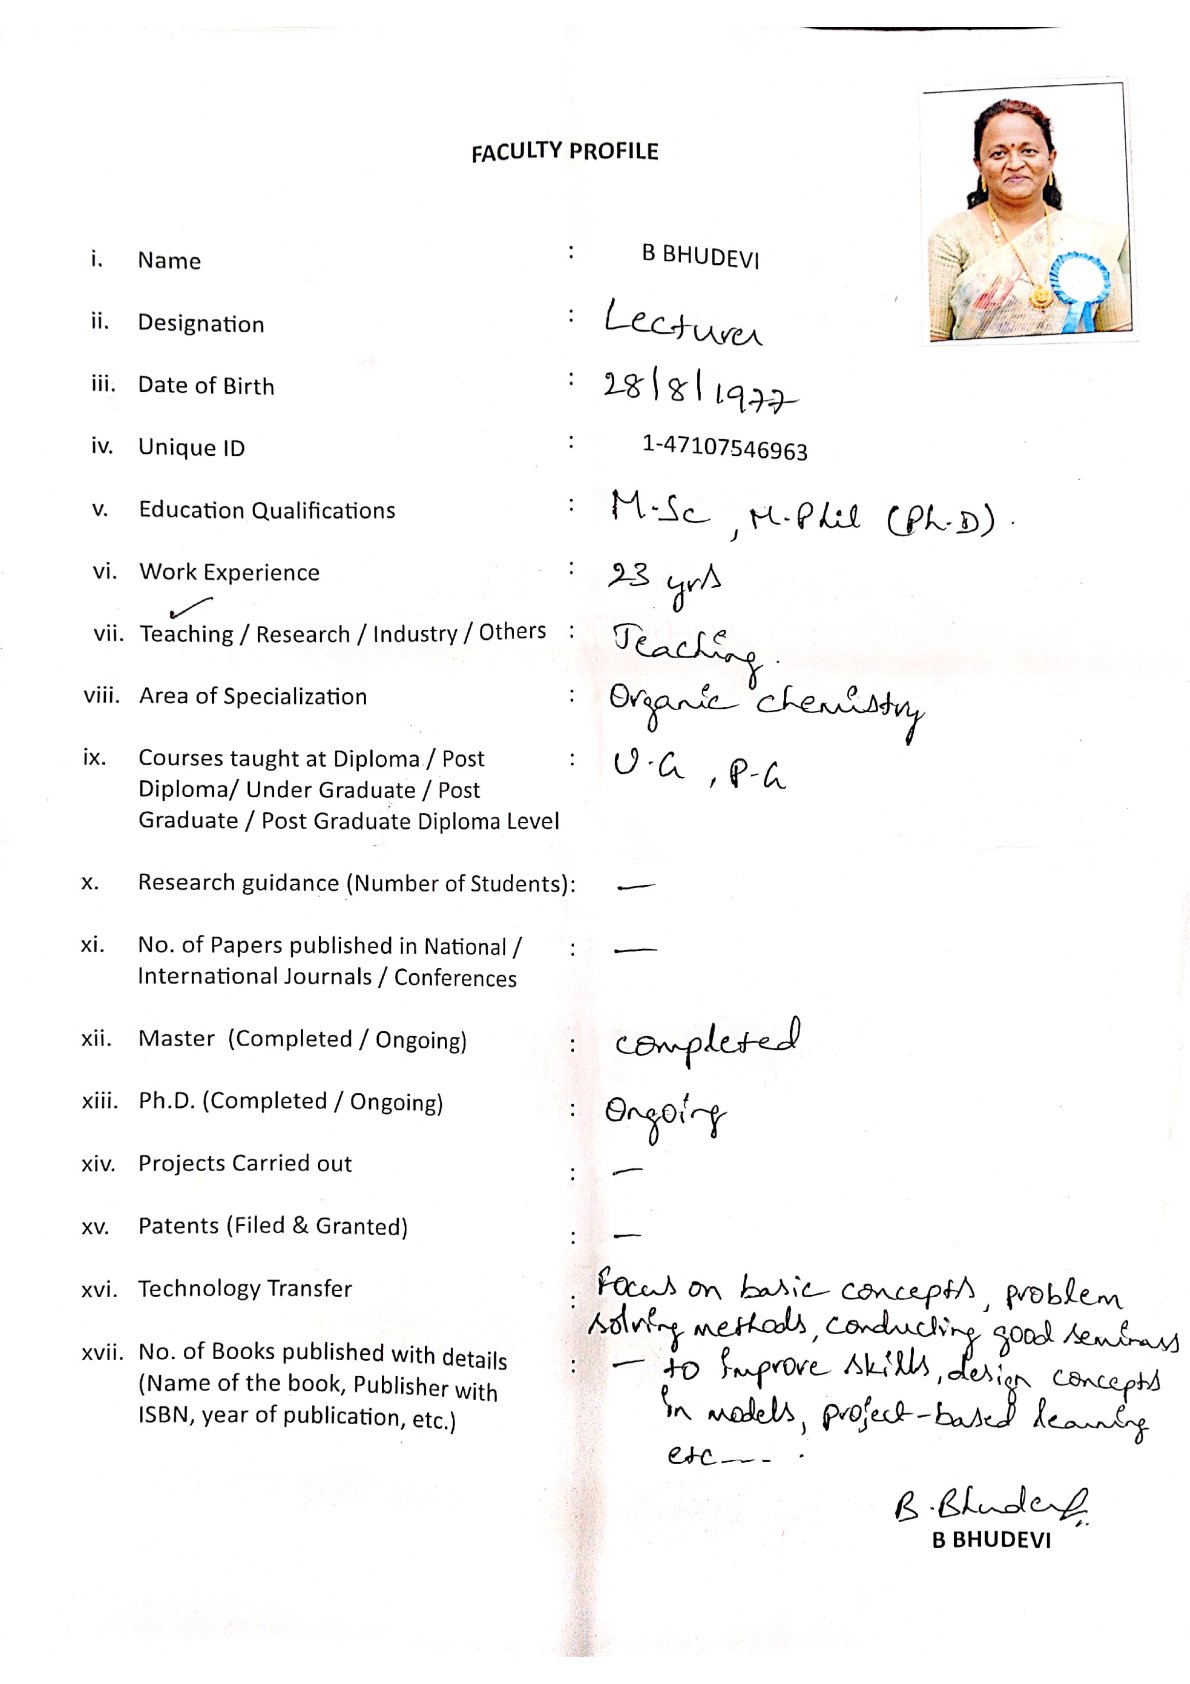 FACULTY PROFILE
i. Name : B BHUDEVI
ii. Designation : Lecturer
iii. Date of Birth : 28/8/1977
iv. Unique ID : 1-47107546963
v. Education Qualifications : M.Sc, M.Phil (Ph.D).
vi. Work Experience : 23 yrs
vii. Teaching / Research / Industry / Others : Teaching.
viii. Area of Specialization : Organic chemistry
ix. Courses taught at Diploma / Post : U.G, P-G
Diploma/ Under Graduate / Post
Graduate / Post Graduate Diploma Level
x. Research guidance (Number of Students): —
xi. No. of Papers published in National / : —
International Journals / Conferences
xii. Master (Completed / Ongoing) : completed
xiii. Ph.D. (Completed / Ongoing) : Ongoing
xiv. Projects Carried out : —
xv. Patents (Filed & Granted) : —
xvi. Technology Transfer : Focus on basic concepts, problem
solving methods, conducting good seminars
xvii. No. of Books published with details : — to improve skills, design concepts
(Name of the book, Publisher with in models, project-based learning
ISBN, year of publication, etc.) etc---- .
B.Bhudevi
B BHUDEVI